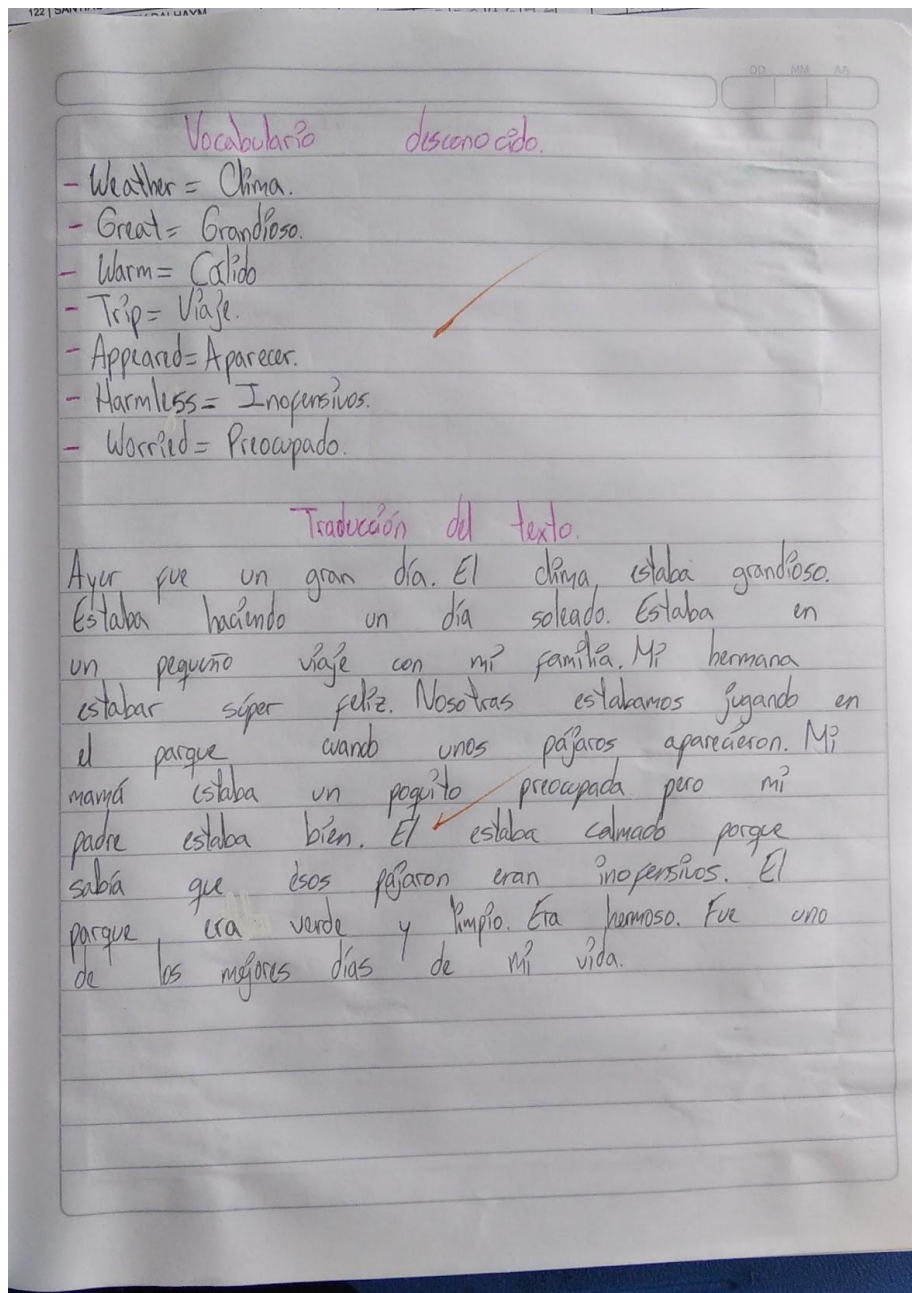 DD MM AA
Vocabulario desconocido.
- Weather = Clima.
- Great = Grandioso.
- Warm = Cálido
- Trip = Viaje.
- Appeared = Aparecer.
- Harmless = Inofensivos.
- Worried = Preocupado.
Traducción del texto.
Ayer fue un gran día. El clima estaba grandioso.
Estaba haciendo un día soleado. Estaba en
un pequeño viaje con mi familia. Mi hermana
estabar súper feliz. Nosotras estabamos jugando en
el parque cuando unos pájaros aparecieron. Mi
mamá estaba un poquito preocupada pero mi
padre estaba bien. Él estaba calmado porque
sabía que esos pájaron eran inofensivos. El
parque era verde y limpio. Era hermoso. Fue uno
de los mejores días de mi vida.